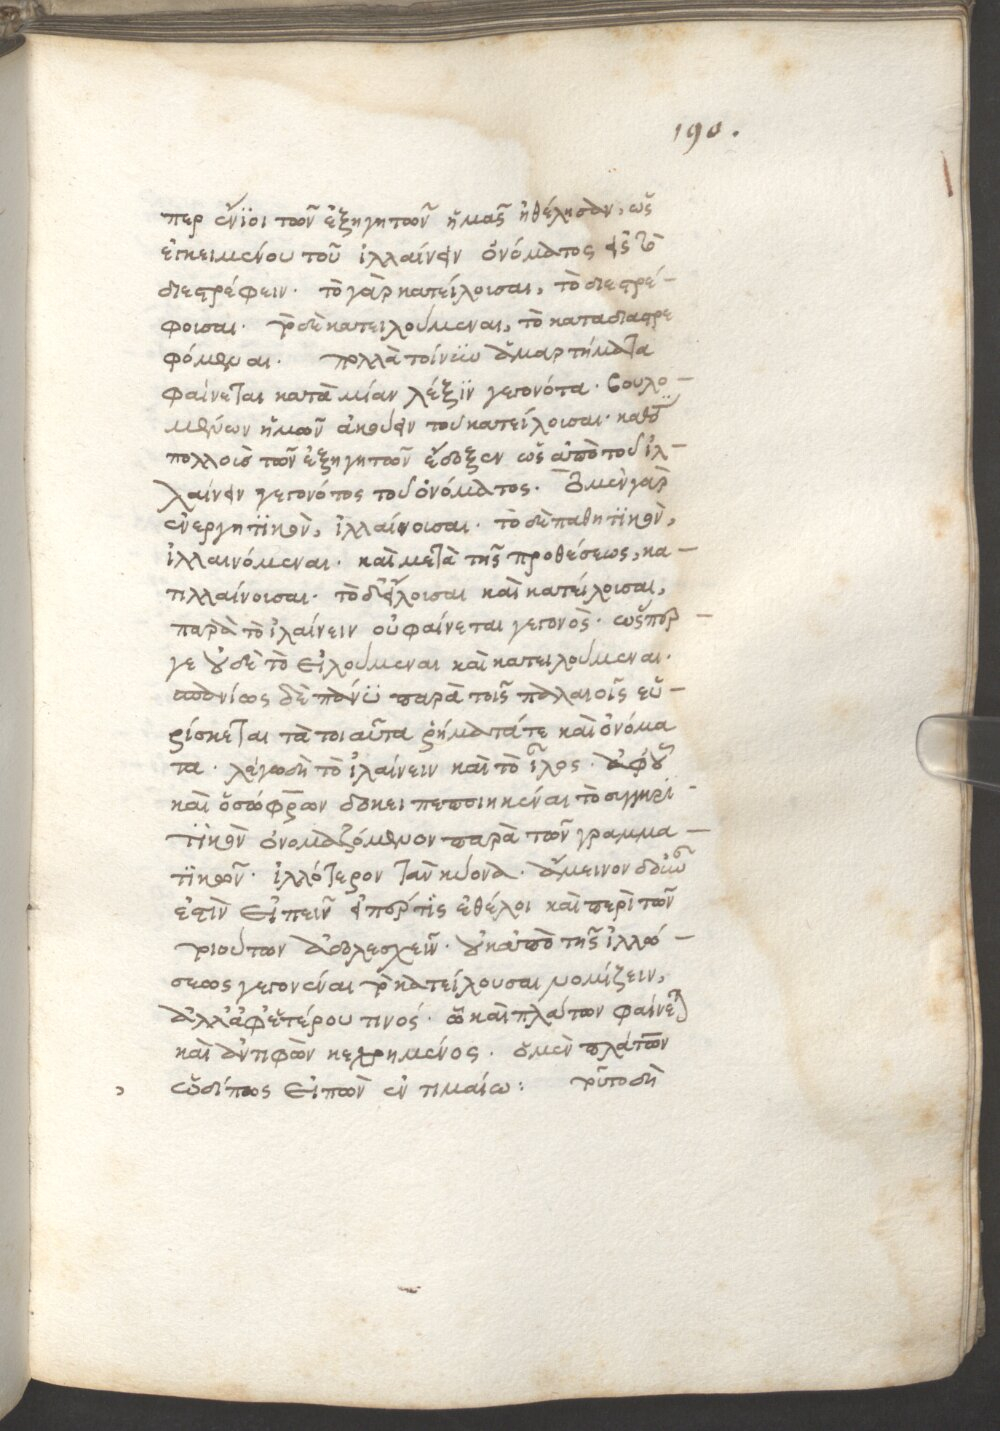 190.
περ ἔνϊοι τῶν ἐξηγητῶν ἡμᾶς ἠθέλησαν, ὡς
ἐγκειμένου τοῦ ἰλλαίνειν ὀνόματος εἰς τὸ
διεστρέφειν. τὸ γὰρ κατείλοισαι, τὸ διεστρέ-
φοισαι. τὸ δὲ κατειλούμεναι, τὸ καταδιαστρε
φόμεναι. πολλὰ τοίνϋν ἁμαρτήματα
φαίνεται κατὰ μίαν λέξϊν γεγονότα. βουλο-
μένων ἡμῶν ἀκούειν τοῦ κατείλοισαι. καθὸ
πολλοῖς τῶν ἐξηγητῶν ἔδοξεν ὡς ἀπὸ τοῦ ἰλ-
λαίνειν γεγονότος τοῦ ὀνόματος. τὸ μὲν γὰρ
ἐνεργητϊκὸν, ἰλλαίνοισαι. τὸ δὲ παθητϊκὸν,
ἰλλαινόμεναι. καὶ μετὰ τῆς προθέσεως, κα-
τιλλαίνοισαι. τὸ δ' εἴλοισαι καὶ κατείλοισαι,
παρὰ τὸ ἰλαίνειν οὐ φαίνεται γεγονὸς. ὥσπερ-
γε οὐδὲ τὸ εἰλούμεναι καὶ κατειλούμεναι.
σπανίως δὲ πάνϋ παρὰ τοῖς παλαιοῖς εὑ-
ρίσκεται τὰ τοιαῦτα ῥήματά τε καὶ ὀνόμα
τα. λέγω δὴ τὸ ἰλαίνειν καὶ τὸ ἶλος. ἀφ' οὗ
καὶ ὁ σώφρων δοκεῖ πεποιηκέναι τὸ συγκρι-
τϊκὸν ὀνομαζόμενον παρὰ τῶν γραμμα-
τϊκῶν. ἰλλότερον τᾶν κορωνᾶν. ἄμεινον δ' οὖν
ἐστὶν εἰπεῖν εἴπερ τϊς ἐθέλοι καὶ περὶ τῶν
τοιούτων ἀδολεσχεῖν. οὐκ ἀπὸ τῆς ἰλλώ-
σεως γεγονέναι τὸ κατείλουσαι νομίζειν,
ἀλλ' ἀφ' ἑτέρου τινός. ᾧ καὶ πλάτων φαίνεται
καὶ ἀντιφῶν κεχρημένος. ὁ μὲν πλάτων
ὧδέ πως εἰπὼν ἐν τιμαίω: τοῦτο δὴ